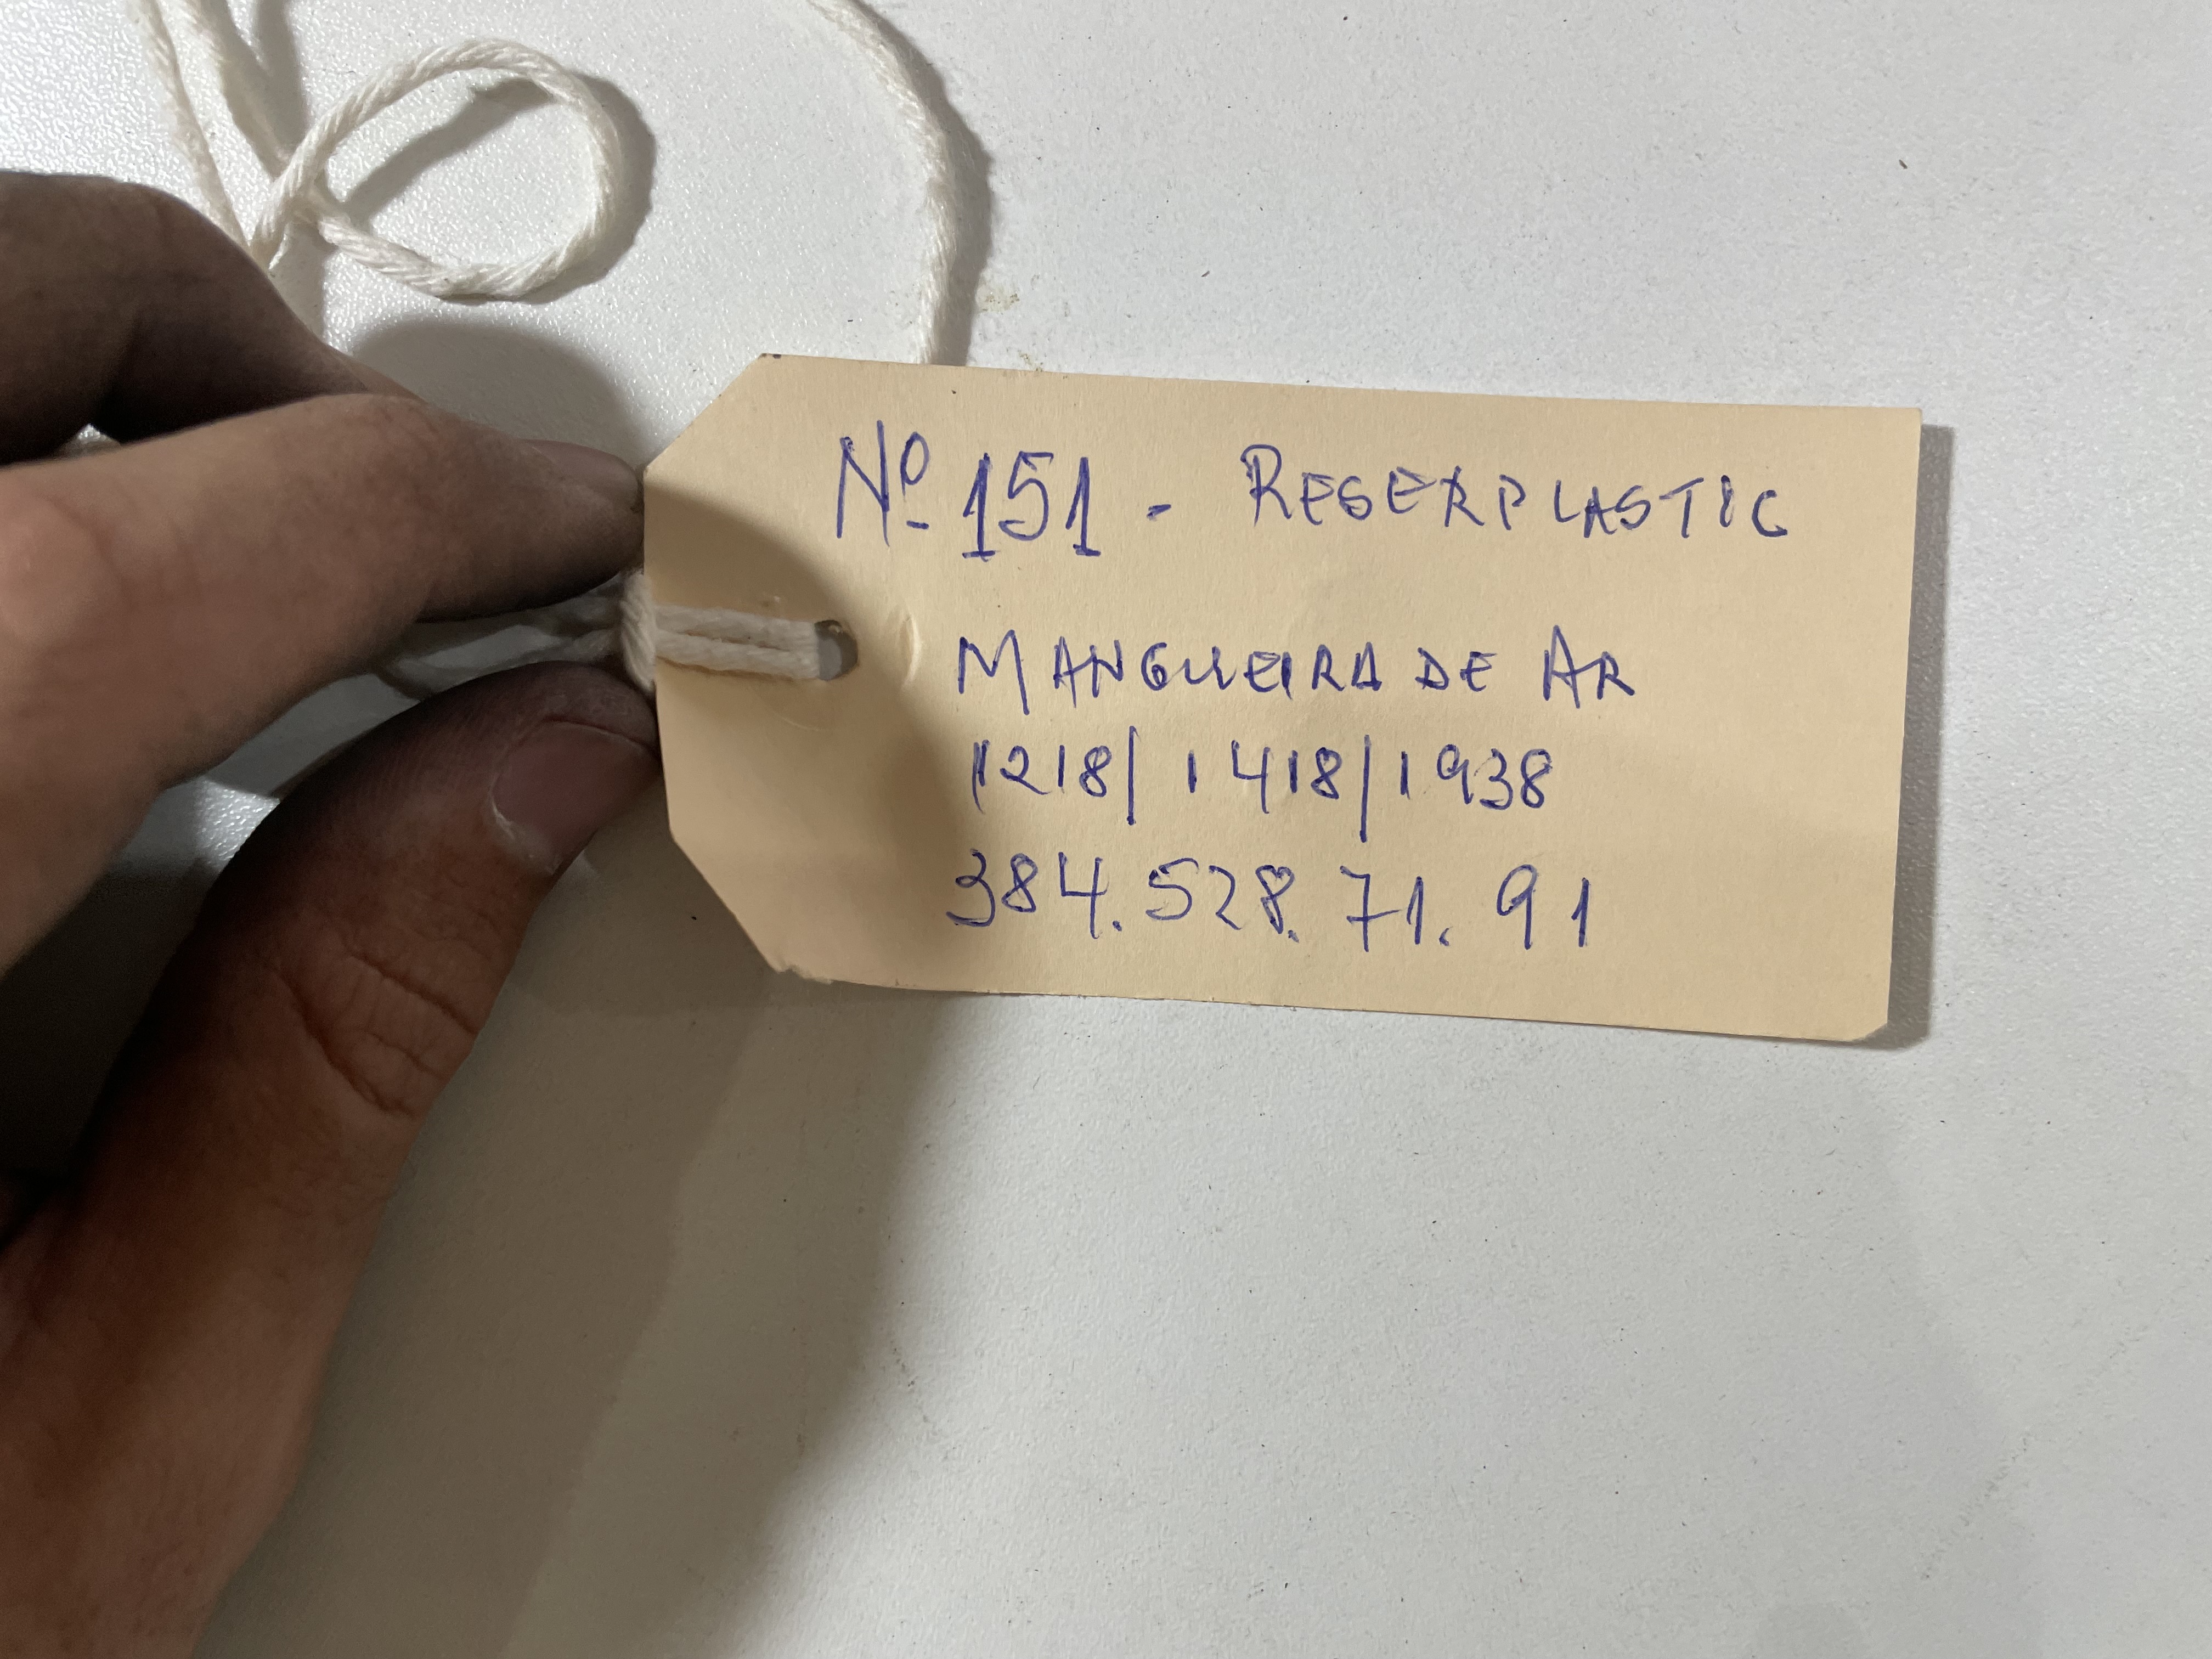 Nº 151 - REGERPLASTIC
MANGUEIRA DE AR
1218|1418|1938
384.528.71.91